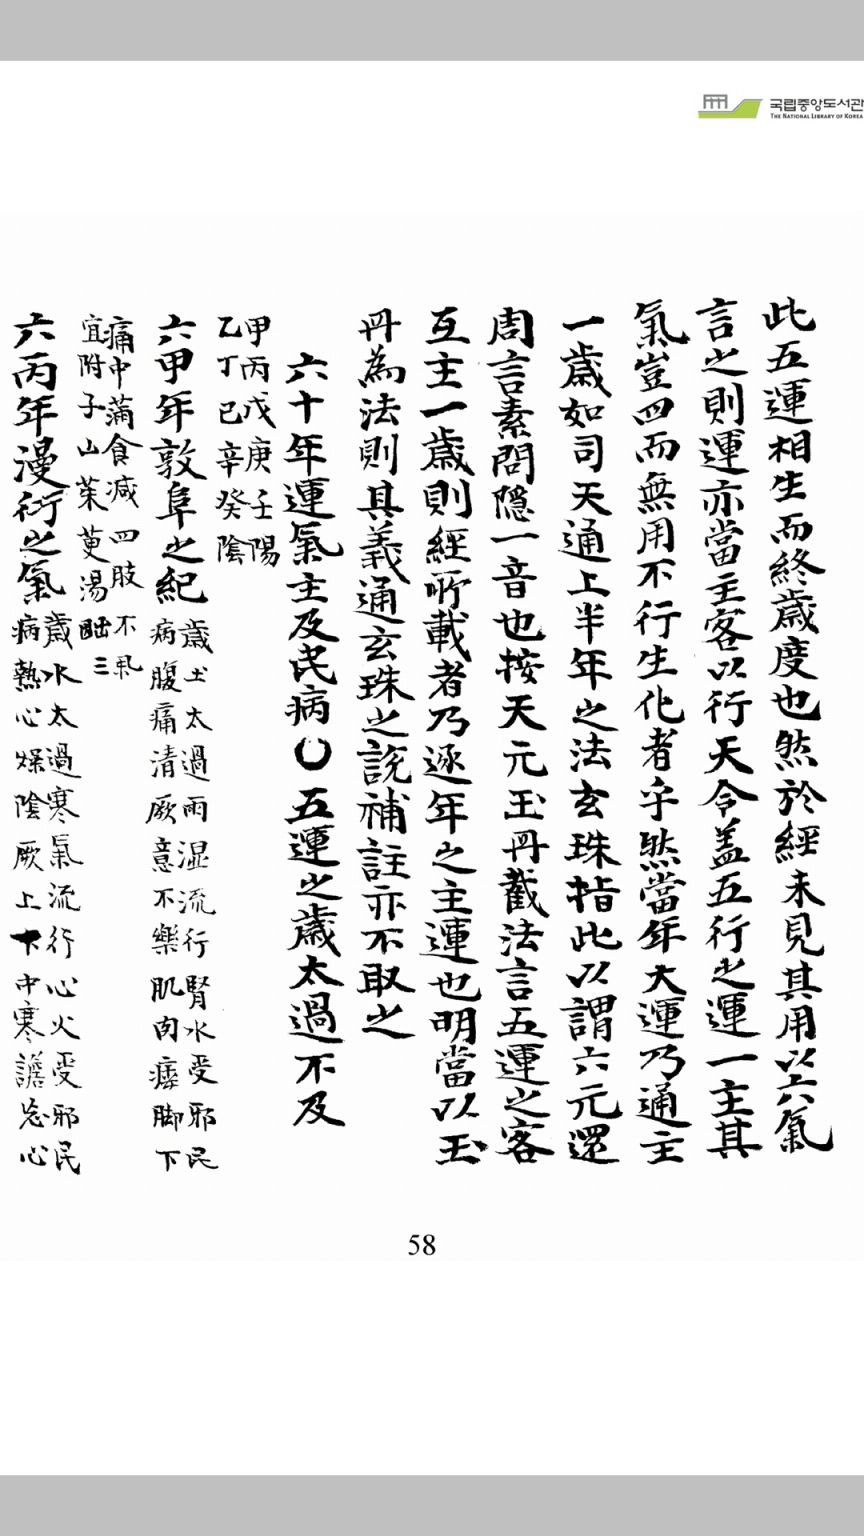 국립중앙도서관
THE NATIONAL LIBRARY OF KOREA
此五運相生而終歲度也然於經未見其用以六氣
言之則運亦當主客以行天令盖五行之運一主其
氣豈四而無用不行生化者乎然當年大運乃通主
一歲如司天通上半年之法玄珠指此以謂六元還
周言素問隱一音也按天元玉冊截法言五運之客
互主一歲則經所載者乃逐年之主運也明當以玉
冊為法則其義通玄珠之說補註亦不取之
六十年運氣主及民病〇五運之歲太過不及
甲丙戊庚壬陽
乙丁巳辛癸陰
六甲年敦阜之紀
歲土太過雨湿流行腎水受邪民
病腹痛清厥意不樂肌肉痿脚下
痛中滿食减四肢不
宜附子山茱萸湯 三
六丙年漫衍之氣
歲水太過寒氣流行心火受邪民
病熱心燥陰厥上下中寒譫忘心
58